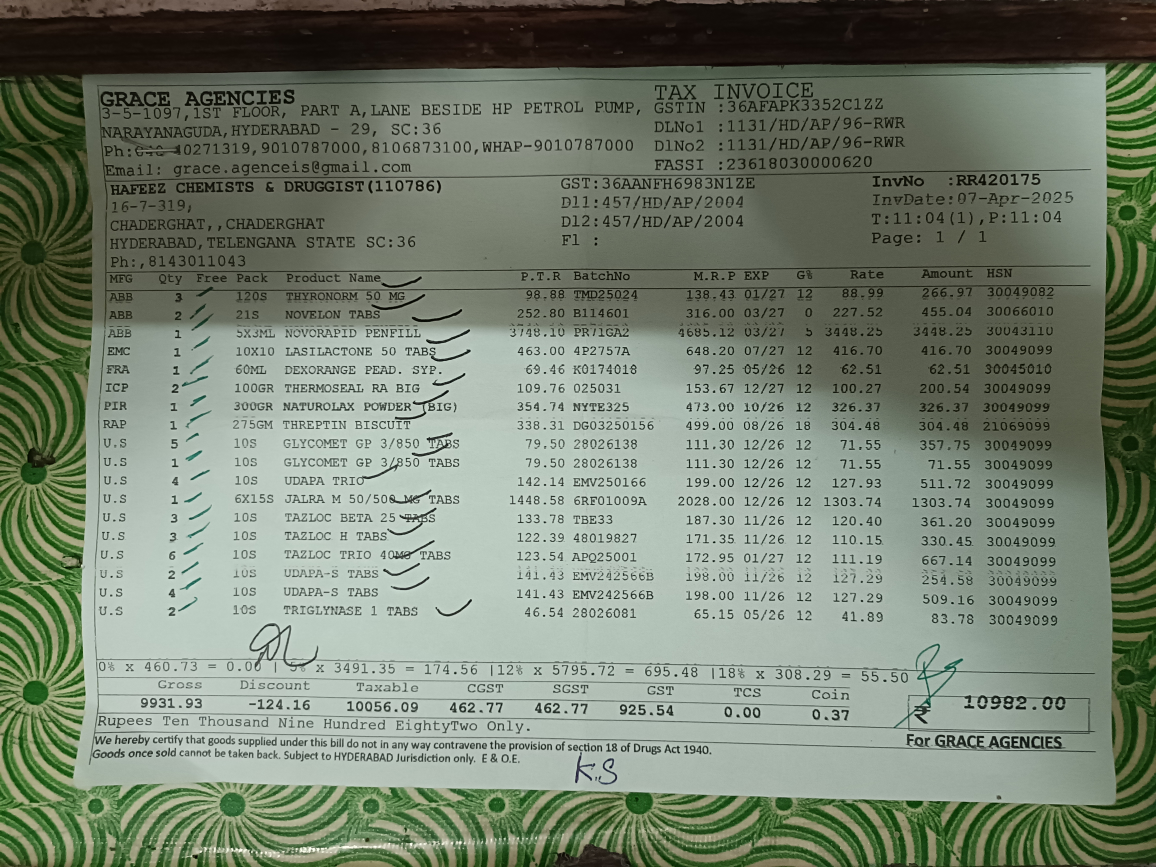 GRACE AGENCIES TAX INVOICE
3-5-1097,1ST FLOOR, PART A,LANE BESIDE HP PETROL PUMP, GSTIN :36AFAPK3352C1ZZ
NARAYANAGUDA,HYDERABAD - 29, SC:36 DLNo1 :1131/HD/AP/96-RWR
Ph: 40271319,9010787000,8106873100,WHAP-9010787000 DlNo2 :1131/HD/AP/96-RWR
Email: grace.agenceis@gmail.com FASSI :23618030000620
HAFEEZ CHEMISTS & DRUGGIST(110786) GST:36AANFH6983N1ZE InvNo :RR420175
16-7-319, Dl1:457/HD/AP/2004 InvDate:07-Apr-2025
CHADERGHAT,,CHADERGHAT Dl2:457/HD/AP/2004 T:11:04(1),P:11:04
HYDERABAD,TELENGANA STATE SC:36 Fl : Page: 1 / 1
Ph:,8143011043
MFG Qty Free Pack Product Name P.T.R BatchNo M.R.P EXP G% Rate Amount HSN
ABB 3 120S THYRONORM 50 MG 98.88 TMD25024 138.43 01/27 12 88.99 266.97 30049082
ABB 2 21S NOVELON TABS 252.80 B114601 316.00 03/27 0 227.52 455.04 30066010
ABB 1 5X3ML NOVORAPID PENFILL 3748.10 PR71GA2 4685.12 03/27 5 3448.25 3448.25 30043110
EMC 1 10X10 LASILACTONE 50 TABS 463.00 4P2757A 648.20 07/27 12 416.70 416.70 30049099
FRA 1 60ML DEXORANGE PEAD. SYP. 69.46 K0174018 97.25 05/26 12 62.51 62.51 30045010
ICP 2 100GR THERMOSEAL RA BIG 109.76 025031 153.67 12/27 12 100.27 200.54 30049099
PIR 1 300GR NATUROLAX POWDER (BIG) 354.74 NYTE325 473.00 10/26 12 326.37 326.37 30049099
RAP 1 275GM THREPTIN BISCUIT 338.31 DG03250156 499.00 08/26 18 304.48 304.48 21069099
U.S 5 10S GLYCOMET GP 3/850 TABS 79.50 28026138 111.30 12/26 12 71.55 357.75 30049099
U.S 1 10S GLYCOMET GP 3/850 TABS 79.50 28026138 111.30 12/26 12 71.55 71.55 30049099
U.S 4 10S UDAPA TRIO 142.14 EMV250166 199.00 12/26 12 127.93 511.72 30049099
U.S 1 6X15S JALRA M 50/500 MG TABS 1448.58 6RF01009A 2028.00 12/26 12 1303.74 1303.74 30049099
U.S 3 10S TAZLOC BETA 25 TABS 133.78 TBE33 187.30 11/26 12 120.40 361.20 30049099
U.S 3 10S TAZLOC H TABS 122.39 48019827 171.35 11/26 12 110.15 330.45 30049099
U.S 6 10S TAZLOC TRIO 40MG TABS 123.54 APQ25001 172.95 01/27 12 111.19 667.14 30049099
U.S 2 10S UDAPA-S TABS 141.43 EMV242566B 198.00 11/26 12 127.29 254.58 30049099
U.S 4 10S UDAPA-S TABS 141.43 EMV242566B 198.00 11/26 12 127.29 509.16 30049099
U.S 2 10S TRIGLYNASE 1 TABS 46.54 28026081 65.15 05/26 12 41.89 83.78 30049099
0% x 460.73 = 0.00 | 5% x 3491.35 = 174.56 |12% x 5795.72 = 695.48 |18% x 308.29 = 55.50
Gross Discount Taxable CGST SGST GST TCS Coin
9931.93 -124.16 10056.09 462.77 462.77 925.54 0.00 0.37 ₹ 10982.00
Rupees Ten Thousand Nine Hundred EightyTwo Only.
We hereby certify that goods supplied under this bill do not in any way contravene the provision of section 18 of Drugs Act 1940. For GRACE AGENCIES
Goods once sold cannot be taken back. Subject to HYDERABAD Jurisdiction only. E & O.E.
K.S